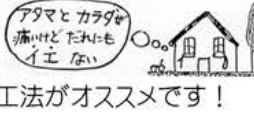 アタマと カラダが
痛いけど だれにも
イエ ない
工法がオススメです！